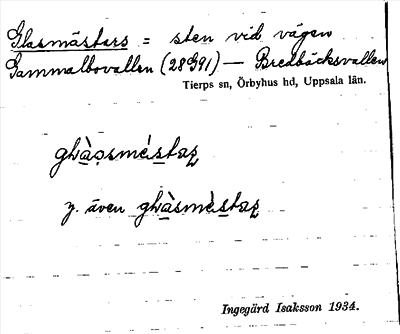 Glasmästars = sten vid vägen
Gammalbovallen (28G91) — Bredbäcksvallen
Tierps sn, Örbyhus hd, Uppsala län.
y. även
Ingegärd Isaksson 1934.